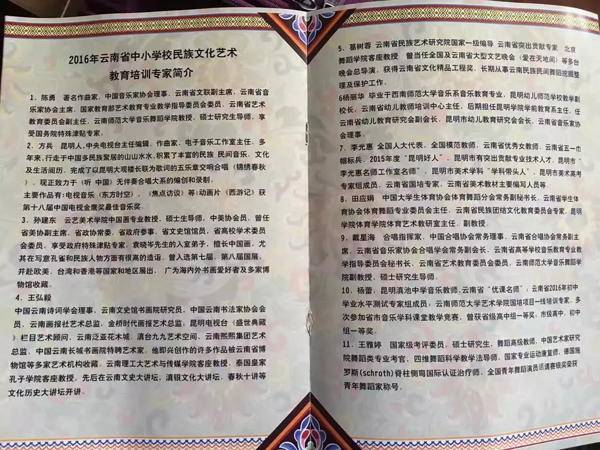 2016年云南省中小学校民族文化艺术
教育培训专家简介
1、陈勇 著名作曲家，中国音乐家协会理事，云南省文联副主席，云南省音
乐家协会主席，国家教育部艺术教育专业教学指导委员会委员，云南省艺术
教育委员会副主任，云南师范大学音乐舞蹈学院教授、硕士研究生导师，享
受国务院特殊津贴专家。
2、方兵 昆明人，中央电视台主任编辑、作曲家、电子音乐工作室主任。多
年来，行走于中国多民族聚居的山山水水，积累了丰富的民族 民间音乐、文
化及生活阅历，完成了以昆明大观楼长联为歌词的五乐章交响合唱《锦绣春秋
》，现正致力于《听 中国》无伴奏合唱大系的编创和录制。
主要作品有：电视音乐《东方时空》，《焦点访谈》等；动画片《西游记》获
第十八届中国电视金鹰奖最佳音乐奖。
3、孙建东 云艺美术学院中国画专业教授、硕士生导师，中美协会员，曾任
省美协副主席，省政协常委，省政府参事，省文史馆馆员，省高校学术委员
会委员，享受政府特殊津贴专家，袁晓岑先生的入室弟子，擅长中国画，尤
其在写意孔雀和民族人物方面有很高的造诣，曾入选第七届、第八届国展，
并赴欧美、台湾和香港等国家和地区展出， 广为海内外书画爱好者及多家博
物馆收藏。
4、王弘毅
中国云南诗词学会理事，云南文史馆书画院研究员，中国云南书法家协会会
员，云南画报社艺术总监，金桥时代画报艺术总监，昆明电视台《盛世典藏
》栏目艺术顾问，云南泛亚花木城，滇台九九艺术空间，云南熙熙集团艺术
总监，中国云南长城书画院特聘艺术家，他即兴创作的许多作品被云南省博
物馆等多家艺术机构收藏，云南理工大艺术与传媒学院客座教授，泰国皇家
孔子学院客座教授，先后在云南文史大讲坛，滇银文化大讲坛，春秋十讲等
文化历史大讲坛开讲。
5、葛树蓉 云南省民族艺术研究院国家一级编导 云南省突出贡献专家 北京
舞蹈学院客座教授 曾当任全国及云南省大型文艺晚会《爱在天地间》等多台
晚会总导演，获得云南省文化精品工程奖，长期从事云南民族民间舞蹈挖掘整
理及保护工作。
6杨丽华 毕业于西南师范大学音乐系音乐教育专业，昆明幼儿师范学校教学副
校长，云南省幼儿教师培训中心主任，后期担任昆明学院学前教育系主任，任
云南省幼儿教育研究会副会长，昆明市幼儿教育研究会会长，云南省音乐家协
会理事。
7、李光惠 全国人大代表、全国模范教师，云南省优秀女教师，云南省五一巾
帼标兵，2015年度“昆明好人”，昆明市有突出贡献专业技术人才，昆明市“
李光惠名师工作室名师”，昆明市美术学科“学科带头人”，昆明市美术高考
专家组成员，云南省国培专家，云南省美术教材主要编写人员等
8、田应娟 中国大学生体育协会体育舞蹈分会常务副秘书长，云南省学生体
育协会体育舞蹈专业委员会主任，云南省民族团结文化教育委员会专家，昆明
学院体育学院体育艺术教研室主任、副教授。
9、戴星海 合唱指挥家，中国合唱协会常务理事，云南省合唱协会常务副主
席，云南省音乐家协会合唱学会常务副会长，云南省高等学校音乐教育专业教
学指导委员会秘书长，云南省艺术教育委员会委员，云南师范大学音乐舞蹈学
院副教授、硕士研究生导师。
10、杨蕾，昆明滇池中学音乐教师，云南省“优课名师”；云南省2016年初中
学业水平测试专家组成员；云南师范大学艺术学院国培项目一线培训专家，多
次参加省市音乐学科课堂教学竞赛，曾获省级高中组一等奖，市级高中、初中
组一等奖。
11、王雅婷 国家级考评委员，硕士研究生，舞蹈高级教师，中国艺术家研究
院舞蹈类专业考官，四维舞蹈科学教学法导师，国家专业运动康复师，德国施
罗斯(schroth)脊柱侧弯国际认证治疗师，全国青年舞蹈演员邀请赛颁奖荣获
青年舞蹈家称号。